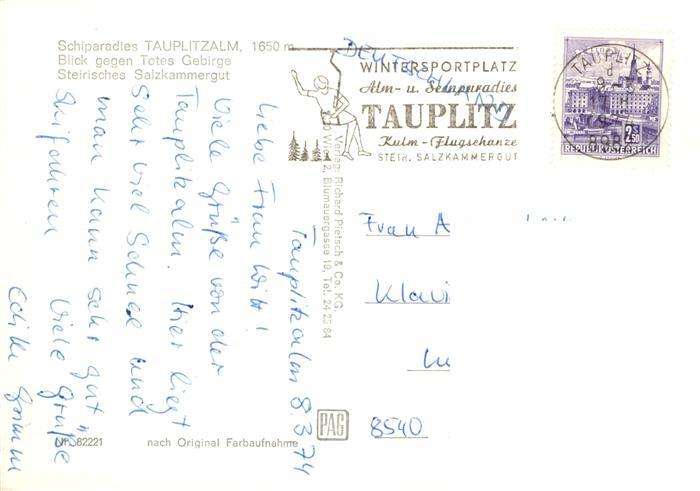 Schiparadies TAUPLITZALM, 1650 m
Blick gegen Totes Gebirge
Steirisches Salzkammergut
DEUTSCHLAND
WINTERSPORTPLATZ
Alm- u. Seenparadies
TAUPLITZ
Kulm-Flugschanze
STEIR. SALZKAMMERGUT
TAUPLITZ
2.50
REPUBLIK ÖSTERREICH
Tauplitzalm 8.3.74
Liebe Frau Witt!
Viele Grüße von der
Tauplitzalm. Hier liegt
sehr viel Schnee und
man kann sehr gut
Skifahren. Viele Grüße
Grimm
Verlag: Richard Pietsch & Co. KG
Wien 2, Blumauergasse 19, Tel. 24 23 84
Frau A
Klavi
8540
PAG
Nr. 82221
nach Original Farbaufnahme